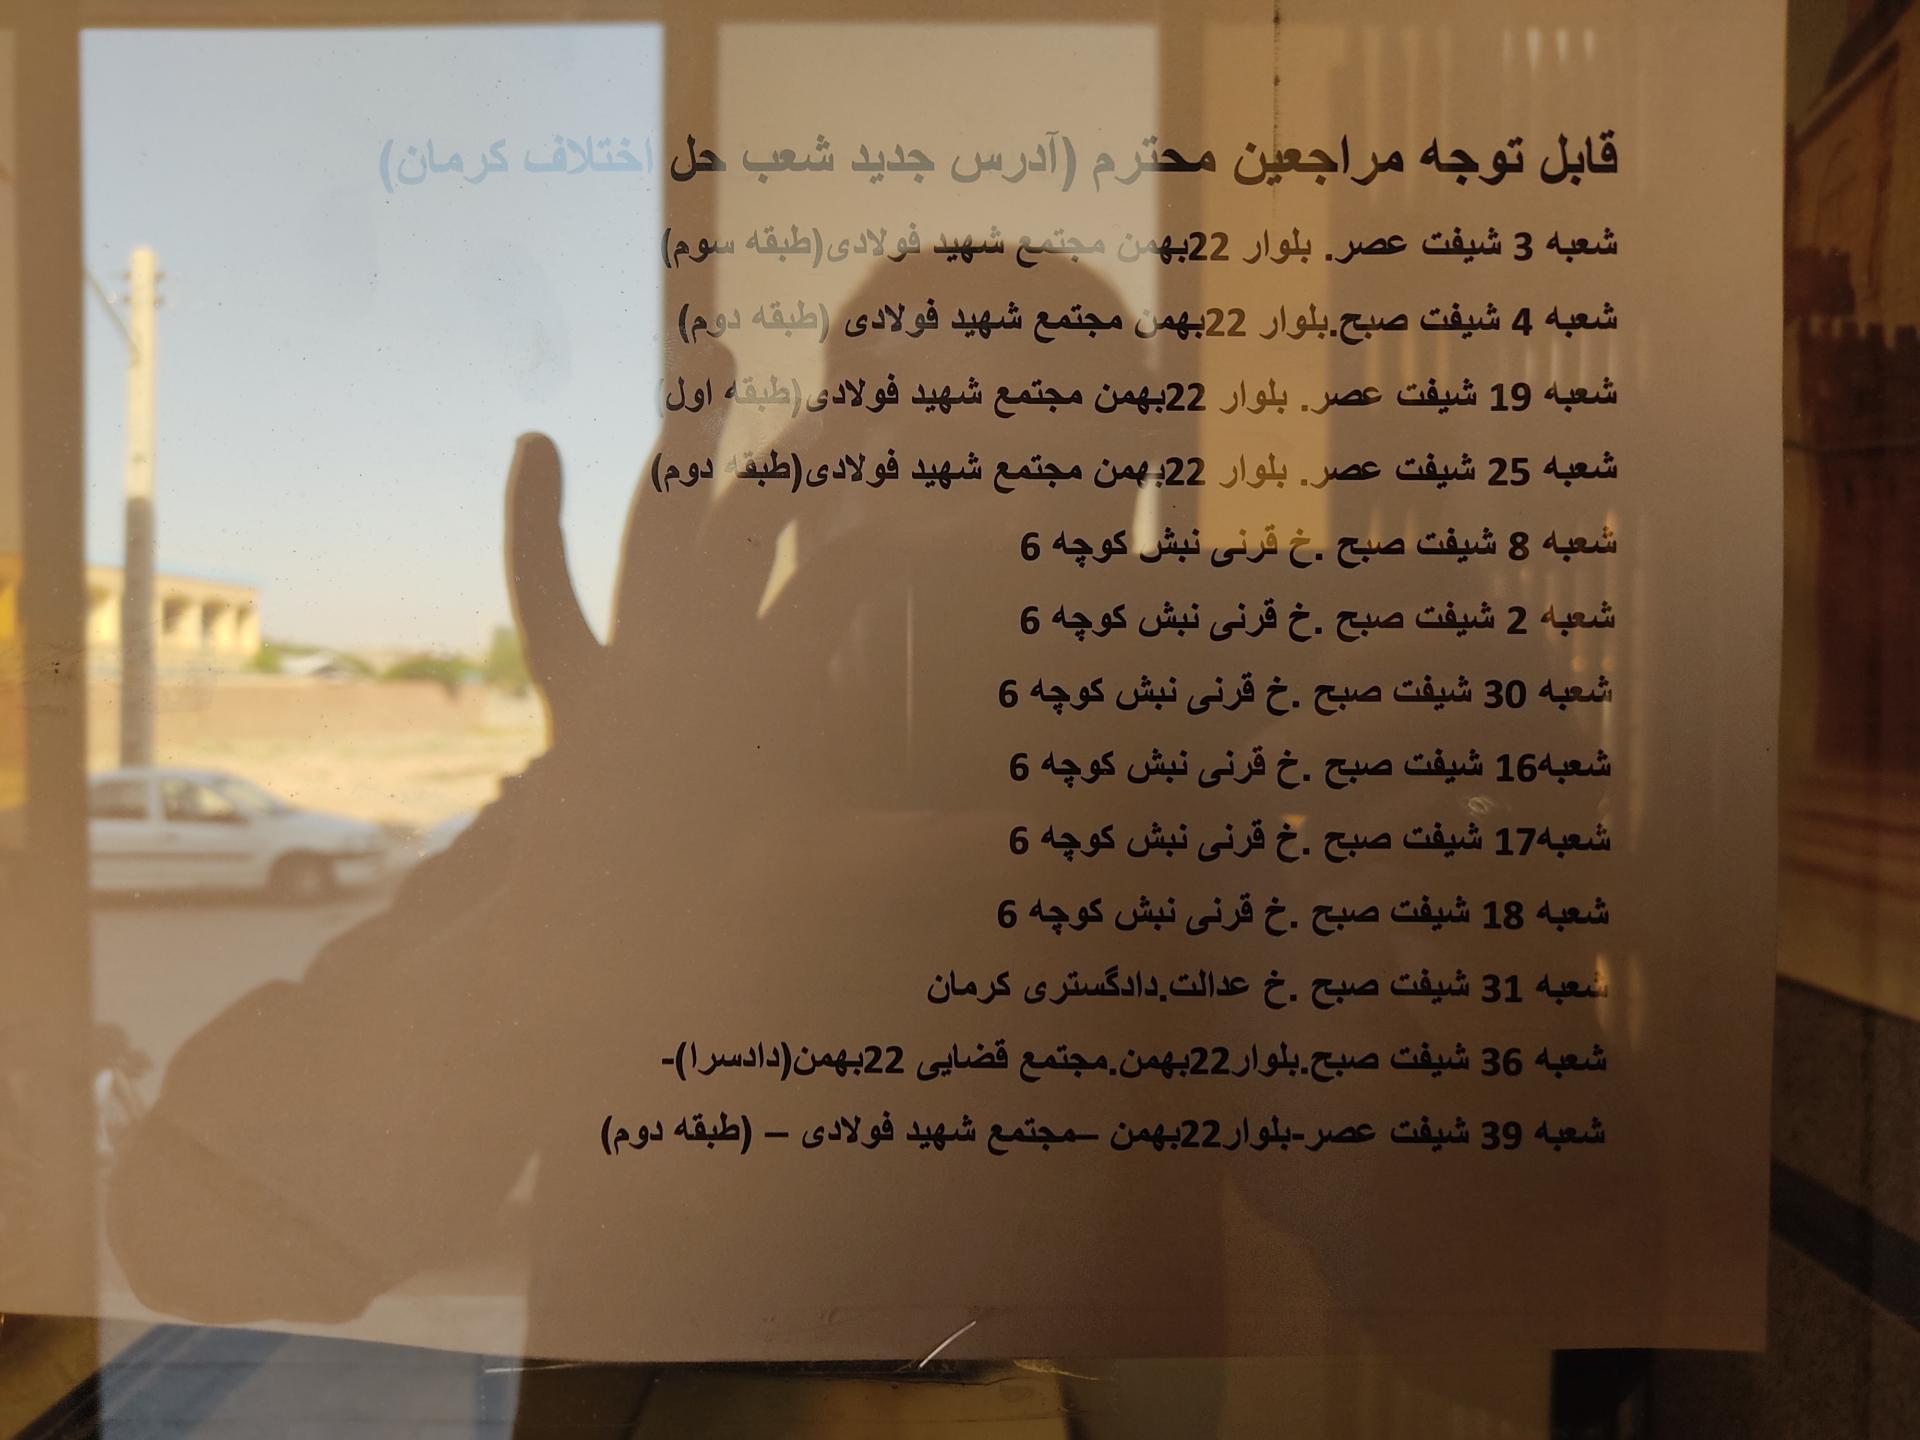 قابل توجه مراجعین محترم (آدرس جدید شعب حل اختلاف کرمان)
شعبه 3 شیفت عصر. بلوار 22بهمن مجتمع شهید فولادی(طبقه سوم)
شعبه 4 شیفت صبح.بلوار 22بهمن مجتمع شهید فولادی (طبقه دوم)
شعبه 19 شیفت عصر. بلوار 22بهمن مجتمع شهید فولادی(طبقه اول)
شعبه 25 شیفت عصر. بلوار 22بهمن مجتمع شهید فولادی(طبقه دوم)
شعبه 8 شیفت صبح .خ قرنی نبش کوچه 6
شعبه 2 شیفت صبح .خ قرنی نبش کوچه 6
شعبه 30 شیفت صبح .خ قرنی نبش کوچه 6
شعبه16 شیفت صبح .خ قرنی نبش کوچه 6
شعبه17 شیفت صبح .خ قرنی نبش کوچه 6
شعبه 18 شیفت صبح .خ قرنی نبش کوچه 6
شعبه 31 شیفت صبح .خ عدالت.دادگستری کرمان
شعبه 36 شیفت صبح.بلوار22بهمن.مجتمع قضایی 22بهمن(دادسرا)-
شعبه 39 شیفت عصر-بلوار22بهمن –مجتمع شهید فولادی – (طبقه دوم)